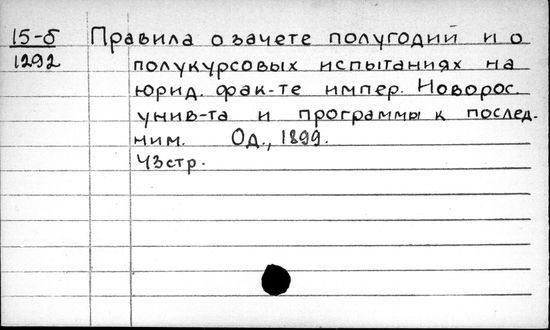 15-б Правила о зачете полугодий и о
1292 полукурсовых испытаниях на
юрид. фак-те импер. Новорос.
унив-та и программы к послед-
ним. Од., 1899.
43 стр.